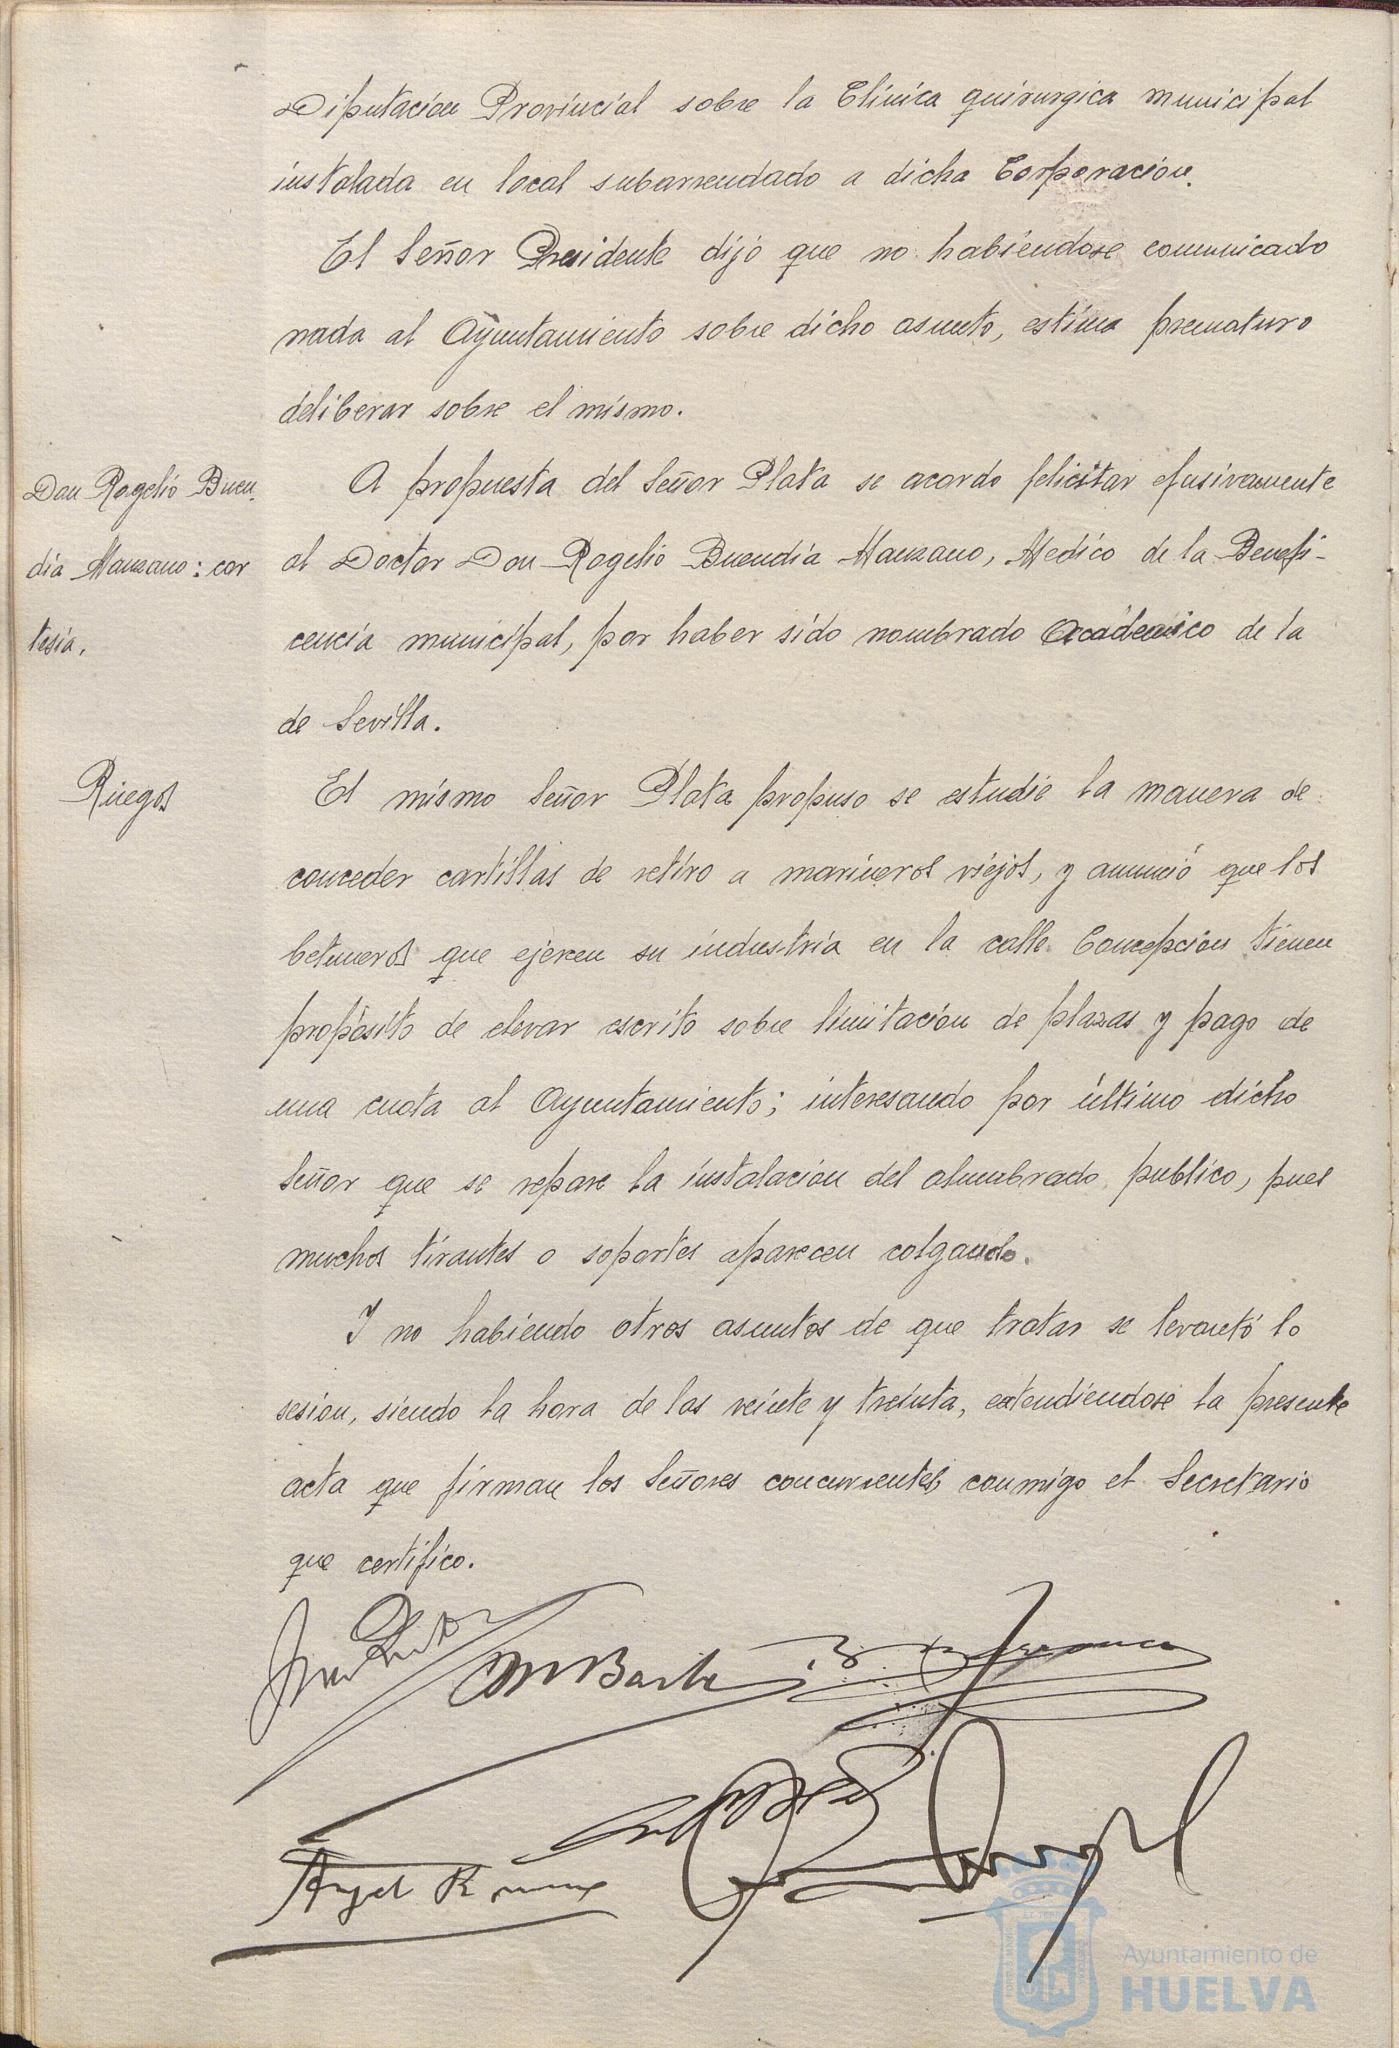 Diputacion Provincial sobre la Clinica quirurgica municipal
instalada en local subarrendado a dicha Corporacion.
El Señor Presidente dijo que no habiendose comunicado
nada al Ayuntamiento sobre dicho asunto, estima prematuro
deliberar sobre el mismo.
Don Rogelio Buen-
dia Manzano: cor
tesia.
A propuesta del Señor Plata se acordo felicitar efusivamente
al Doctor Don Rogelio Buendia Manzano, Medico de la Benefi-
cencia municipal, por haber sido nombrado Académico de la
de Sevilla.
Ruegos
El mismo Señor Plata propuso se estudie la manera de
conceder cartillas de retiro a marineros viejos, y anunció que los
betuneros que ejercen su industria en la calle Concepcion tienen
propósito de elevar escrito sobre limitacion de plazas y pago de
una cuota al Ayuntamiento; interesando por último dicho
Señor que se repare la instalacion del alumbrado publico, pues
muchos tirantes o soportes aparecen colgando.
Y no habiendo otros asuntos de que tratar se levantó la
sesion, siendo la hora de las veinte y treinta, extendiendose la presente
acta que firman los Señores concurrentes conmigo el Secretario
que certifico.
Angel
Ayuntamiento de
HUELVA